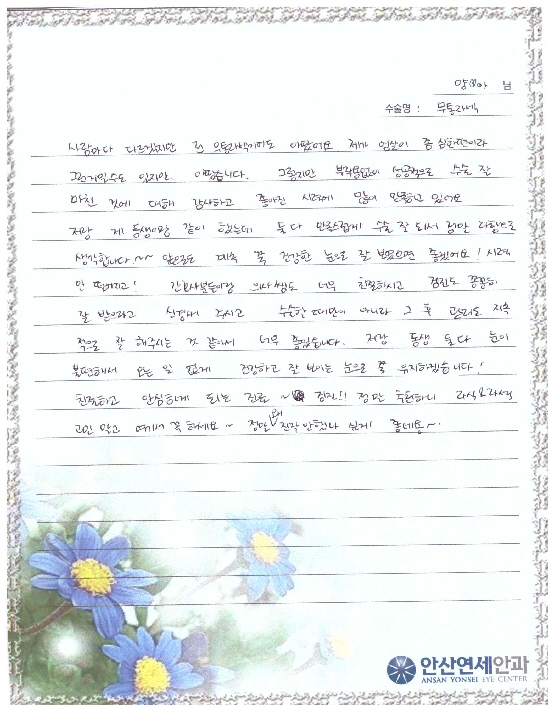 양 아 님
수술명 : 무통라섹
사람마다 다르겠지만 전 무통라섹이어도 아팠어요 제가 엄살이 좀 심한편이라
그런거일수도 있지만 아팠습니다. 그렇지만 부작용없이 성공적으로 수술 잘
마친 것에 대해 감사하고 좋아진 시력에 많이 만족하고 있어요
저랑 제 동생이랑 같이 했는데 둘 다 만족스럽게 수술 잘 되서 정말 다행으로
생각합니다~~ 앞으로도 계속 쭉 건강한 눈으로 잘 보였으면 좋겠어요! 시력도
안 떨어지고! 간호사분들이랑 의사쌤도 너무 친절하시고 검진도 꼼꼼히
잘 받으라고 신경써 주시고 수술할 때만이 아니라 그 후 관리도 지속
적으로 잘 해주시는 것 같아서 너무 좋았습니다. 저랑 동생 둘다 눈이
불편해서 오는 일 없게 건강하고 잘 보이는 눈으로 쭉 유지하겠습니다!
친절하고 안심하게 되는 진료 ~ 정말!! 정말 추천하니 라식요라섹
고민 말고 여기서 꼭 하세요~ 정말 왜 진작 안했나 싶게 좋네용~
안산연세안과
ANSAN YONSEI EYE CENTER